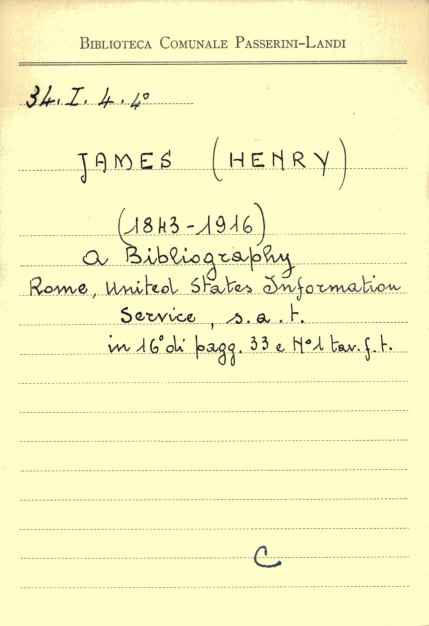 BIBLIOTECA COMUNALE PASSERINI-LANDI
34. I. 4. 4°
JAMES (HENRY)
(1843-1916)
A Bibliography
Rome, United States Information
Service, s.a.t.
in 16° di pagg. 33 e N°1 tav. f. t.
C